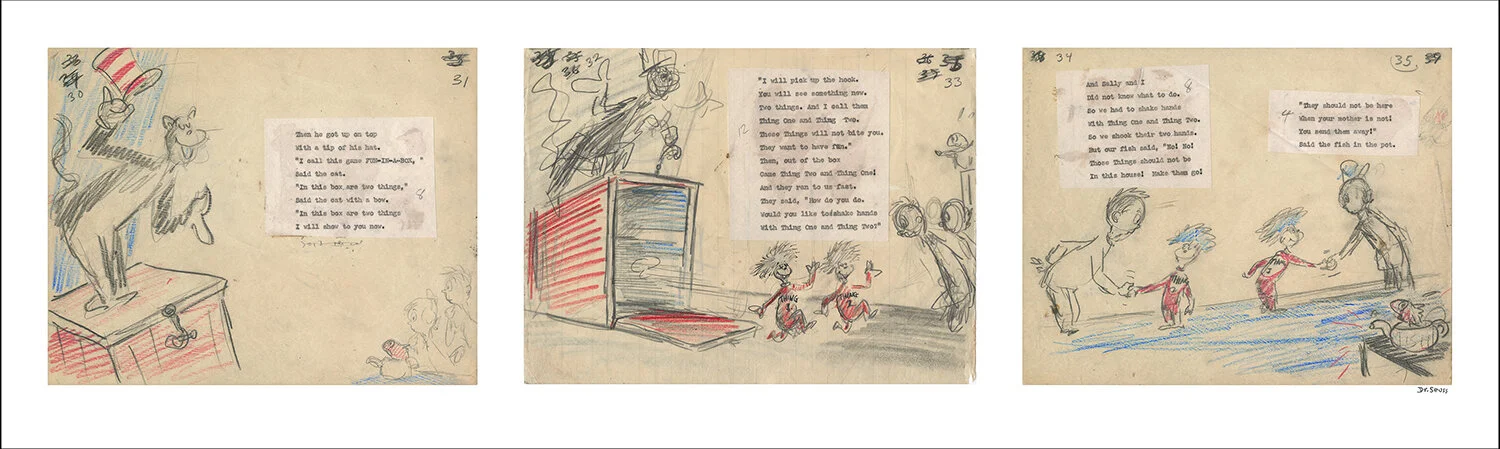 30
31
Then he got up on top
With a tip of his hat.
"I call this game FUN-IN-A-BOX, "
Said the cat.
"In this box are two things,"
Said the cat with a bow.
"In this box are two things
I will show to you now.
8
32
33
"I will pick up the hook.
You will see something new.
Two things. And I call them
Thing One and Thing Two.
These Things will not bite you.
They want to have fun."
Then, out of the box
Came Thing Two and Thing One!
And they ran to us fast.
They said, "How do you do.
Would you like to shake hands
With Thing One and Thing Two?"
12
THING
THING
34
And Sally and I
Did not know what to do.
So we had to shake hands
With Thing One and Thing Two.
So we shook their two hands.
But our fish said, "No! No!
Those Things should not be
In this house! Make them go!
8
35
"They should not be here
When your mother is not!
You send them away!"
Said the fish in the pot.
4
THING
THING
Dr. Seuss